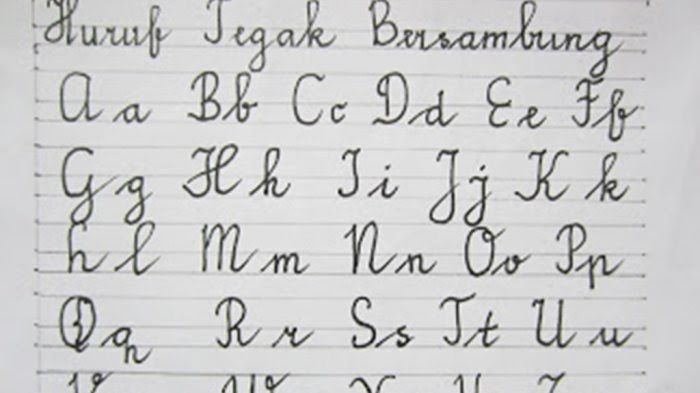 Huruf Tegak Bersambung
A a Bb Cc Dd Ee Ff
Gg Hh Ii Jj Kk
L l Mm Nn Oo Pp
Qq Rr Ss Tt Uu